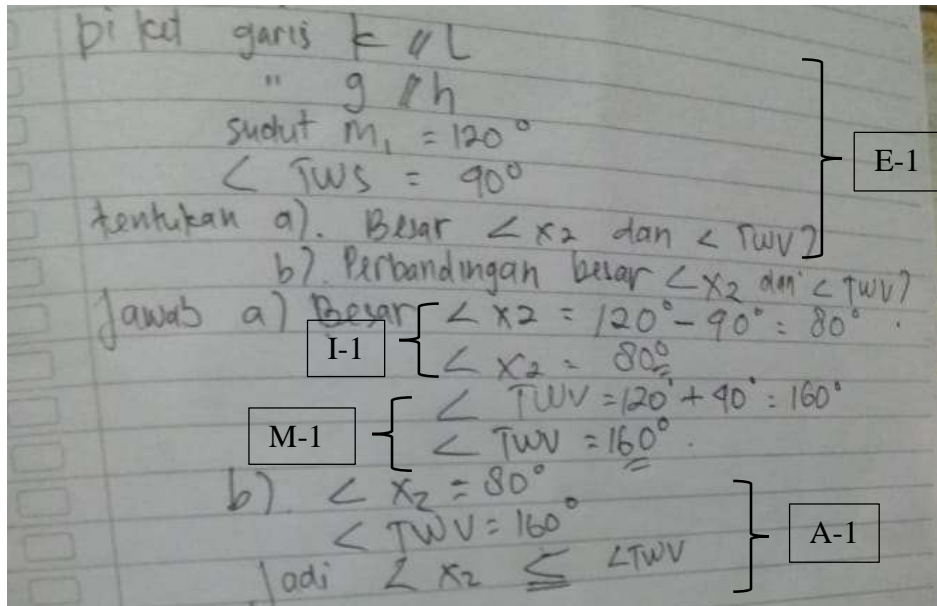 Diket garis k // l
" g // h
sudut M₁ = 120°
< TWS = 90°
E-1
tentukan a). Besar < x2 dan < TWV?
b). Perbandingan besar < x2 dan < TWV?
Jawab a) Besar < x2 = 120° - 90° = 80°.
I-1
< x2 = 80°
< TWV = 120° + 40° = 160°
M-1
< TWV = 160°.
b). < x₂ = 80°
< TWV = 160°
A-1
Jadi < x2 ≤ <TWV